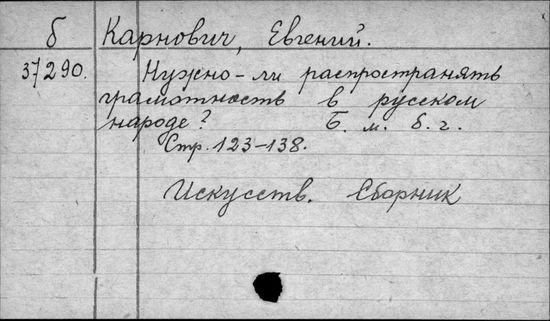 б Карнович, Евгений.
37290. Нужно-ли распространять
грамотность в русском
народе? Б. м. б. г.
Стр. 123-138.
Искусств. Сборник